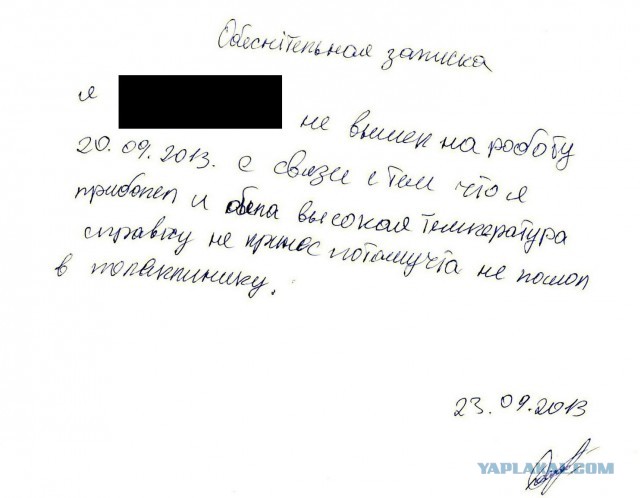 Обеснітельная записка
я
не вышел на роботу
20.09.2013. с связи с тем что я
приболел и была высокая температура
справку не принос потомучта не пошол
в полаклинику.
23.09.2013
YAPLAKAL.COM